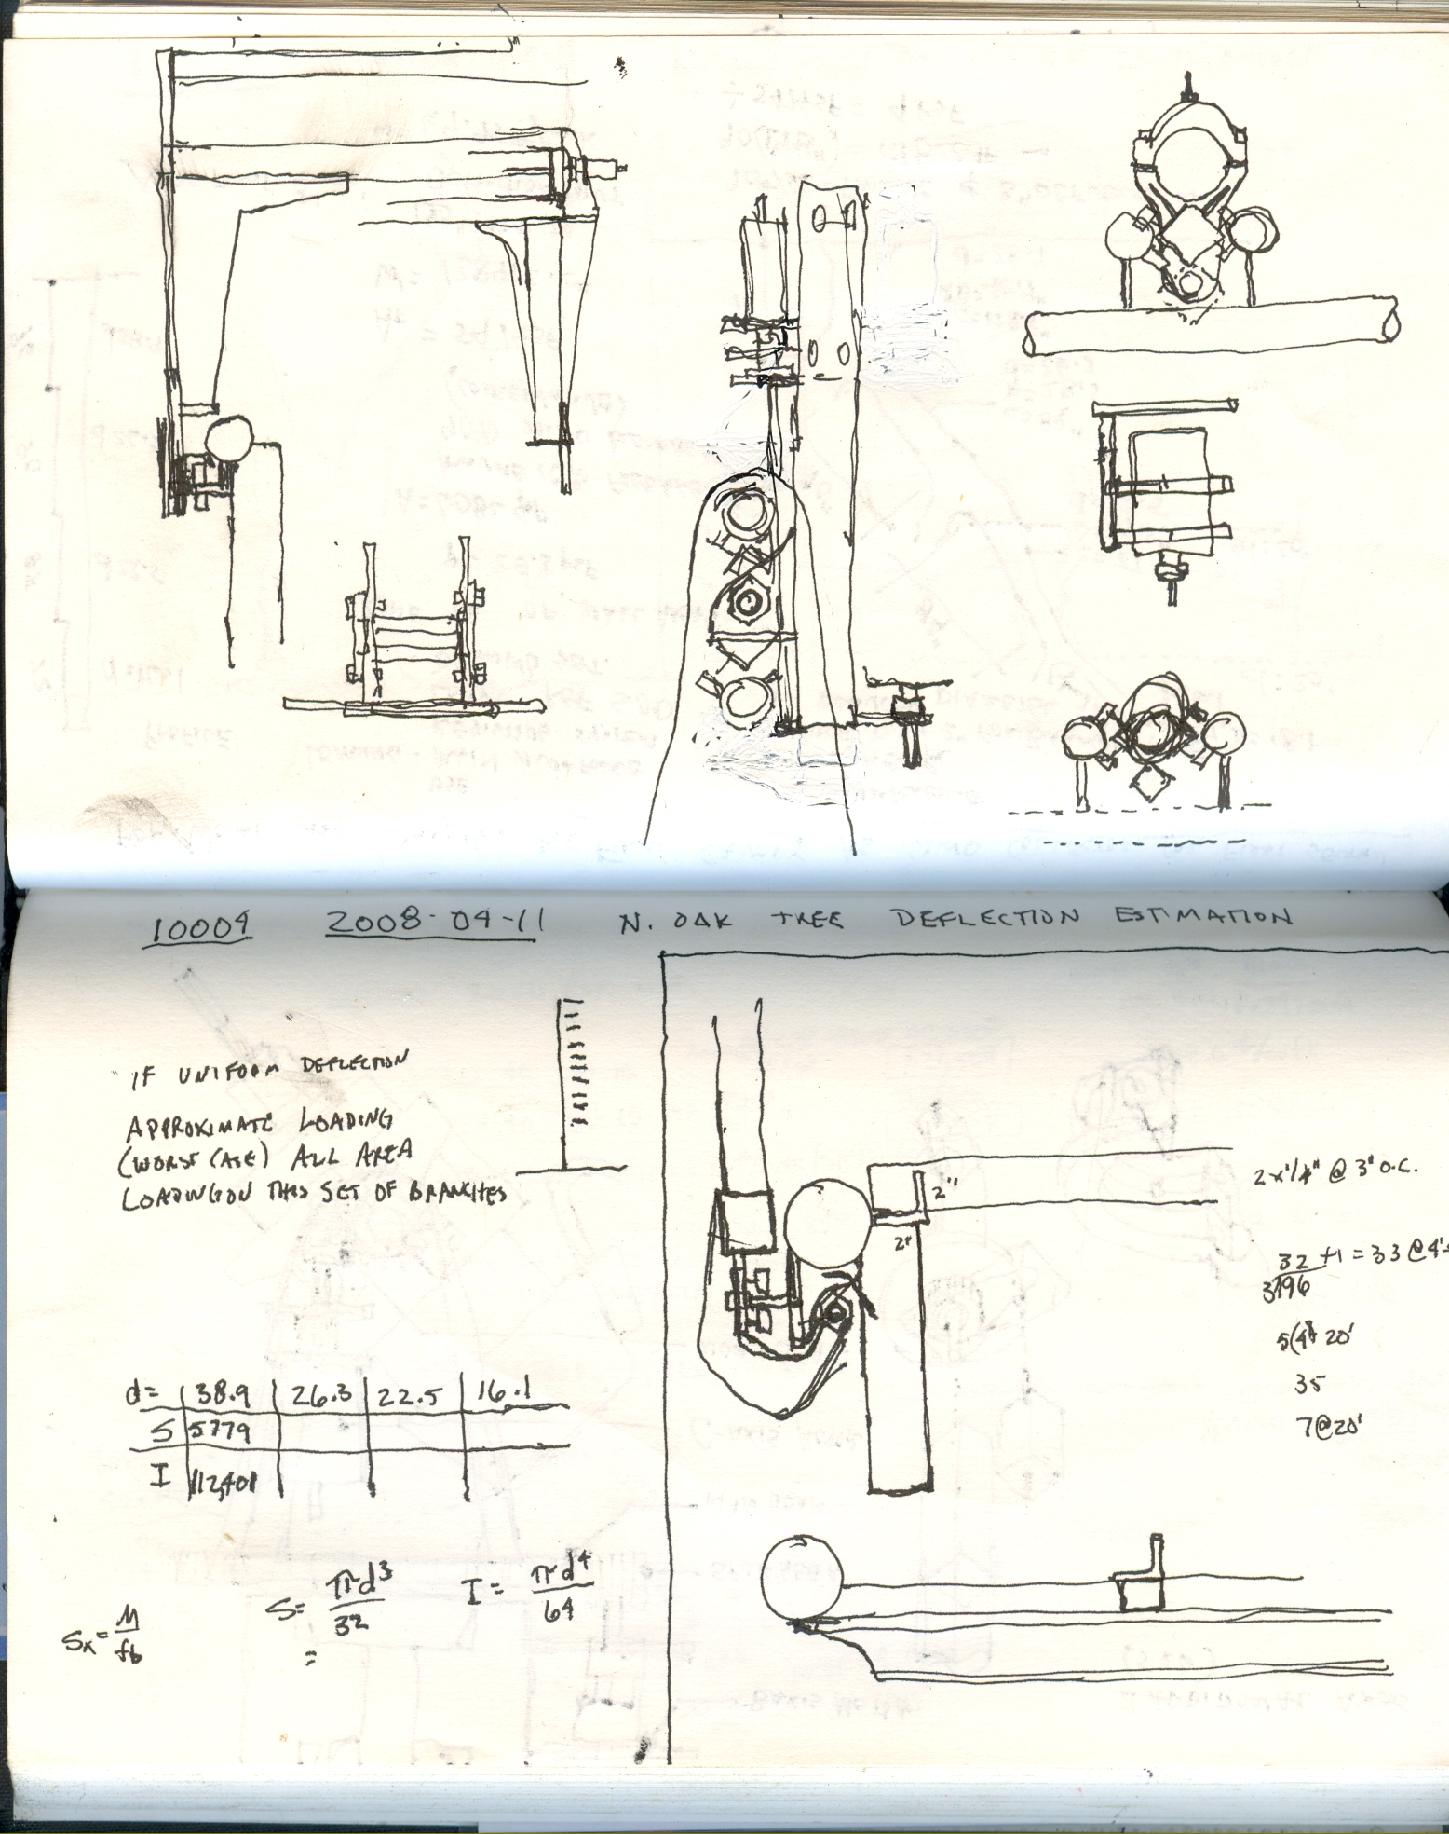 10004 2008-04-11 N. OAK TREE DEFLECTION ESTIMATION
IF UNIFORM DEFLECTION
APPROXIMATE LOADING
(WORST CASE) ALL AREA
LOADING ON THIS SET OF BRANCHES
d= 38.9 26.3 22.5 16.1
S 5779
I 112,401
S= πd³/32
=
I= πd⁴/64
Sx= M/fb
2"
2"
2x1/4" @ 3" O.C.
32 +1 = 33 @ 4'
3)96
5(4) 20'
35
7@20'